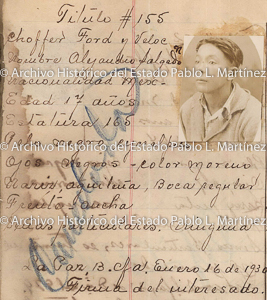 Título # 155
Choffer Ford y Veloc.
Nombre Alejandro Salgado
Archivo Histórico del Estado Pablo L. Martínez
Nacionalidad Mex.
Edad 17 años
Estatura 165
Pelo negro
Archivo Histórico del Estado Pablo L. Martínez
Ojos negros - color moreno
Nariz aguileña, Boca regular
Frente Ancha
Archivo Histórico del Estado Pablo L. Martínez
Señas particulares ninguna
Cancelada
La Paz, B. Cfa. Enero 16 de 193
Archivo Histórico del Estado Pablo L. Martínez
Firma del interesado.